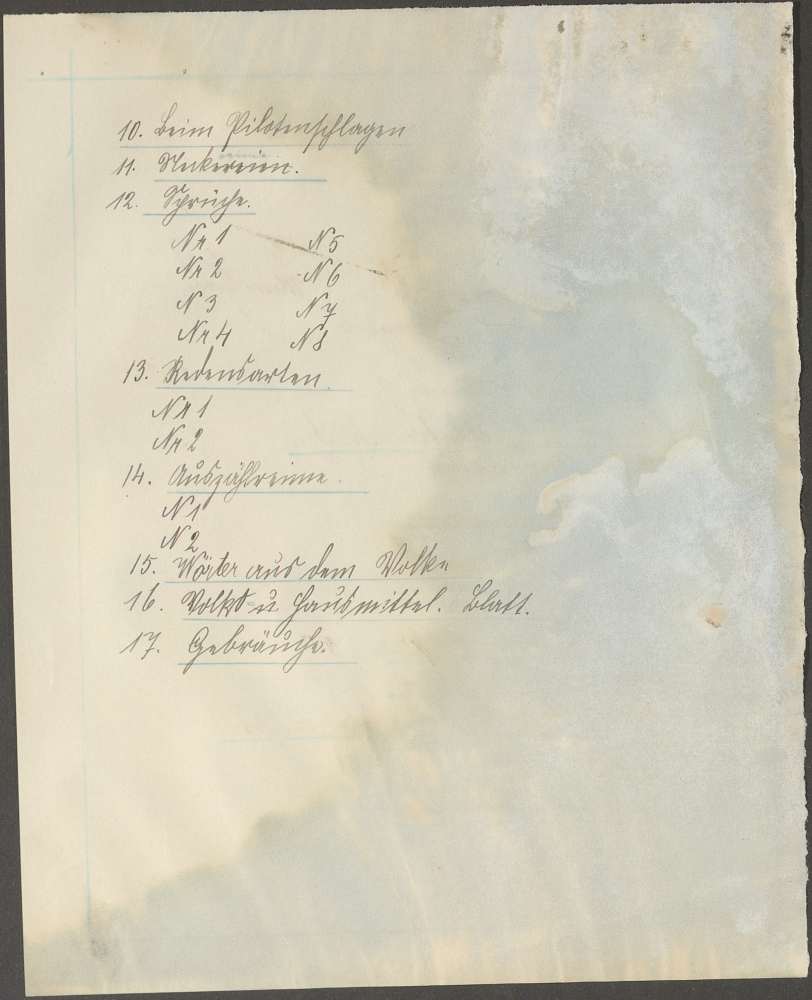 10. Beim Pilotenschlagen
11. Neckereien.
12. Sprüche.
Nr 1 N 5
Nr 2 N 6
N 3 N 7
Nr 4 N 8
13. Redensarten.
Nr 1
Nr 2
14. Auszählreime.
N 1
N 2
15. Wörter aus dem Volke
16. Volks u Hausmittel. Blatt.
17. Gebräuche.